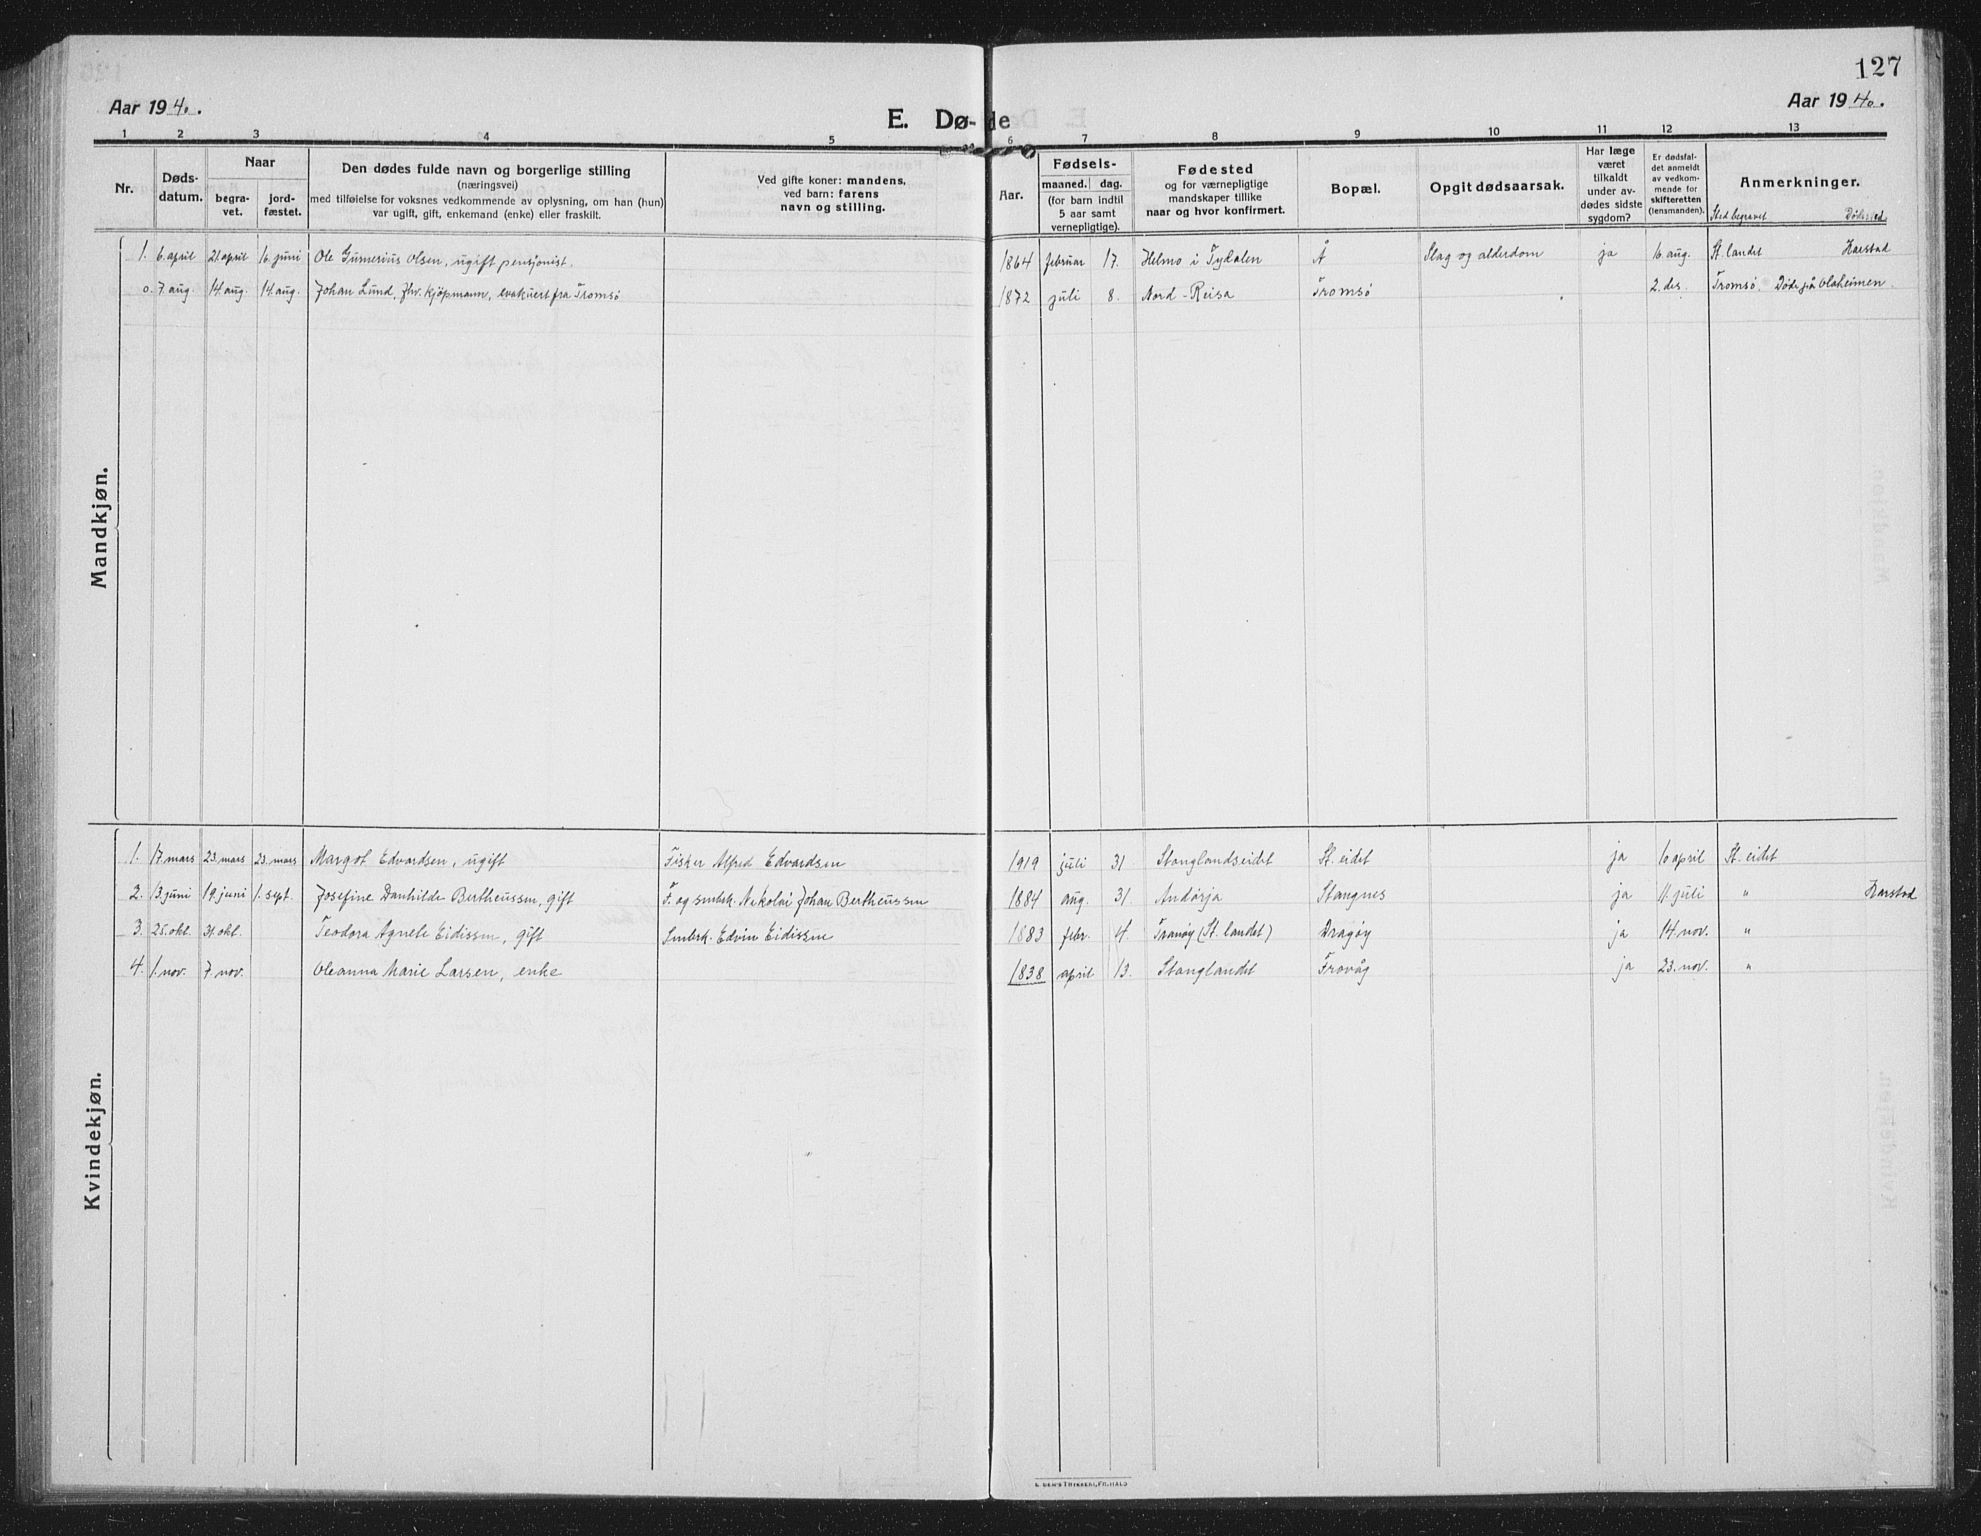 127
Aar 1940.
E. Dø-de
Aar 1940.
1 2 3 4 5 6 7 8 9 10 11 12 13
Nr.
Døds-datum.
Naar
begra-vet.
jord-fæstet.
Den dødes fulde navn og borgerlige stilling
(næringsvei)
med tilføielse for voksnes vedkommende av oplysning, om han (hun)
var ugift, gift, enkemand (enke) eller fraskilt.
Ved gifte koner: mandens,
ved barn: farens
navn og stilling.
Aar.
Fødsels-
maaned. dag.
(for barn indtil
5 aar samt
vernepligtige).
Fødested
og for værnepligtige
mandskaper tillike
naar og hvor konfirmert.
Bopæl.
Opgit dødsaarsak.
Har læge
været
tilkaldt
under av-
dødes sidste
sygdom?
Er dødsfal-
det anmeldt
av vedkom-
mende for
skifteretten
(lensmanden).
Anmerkninger.
Sted begravet Dødssted
Mandkjøn.
1. 6. april 21. april 16. juni Ole Gumerius Olsen, ugift pensjonist. 1864 februar 17. Helmo i Tydalen Å Slag og alderdom ja 16. aug. St. landet Harstad
0. 7. aug. 14. aug. 14. aug. Johan Lund, fhv. kjöpmann, evakuert fra Tromsø 1872 juli 8. Nord-Reisa Tromsø 2. des. Tromsø. Döde på Olaheimen.
Kvindekjøn.
1. 17. mars 23. mars 23. mars Margot Edvardsen, ugift Fisker Alfred Edvardsen 1919 juli 31 Stonglandseidet St. eidet ja 10 april St. eidet
2. 13. juni 19. juni 1. sept. Josefine Danhilde Bertheussen, gift F. og småbr. Nikolai Johan Bertheussen 1884 aug. 31. Andørja Stangnes ja 11. juli " Harstad
3. 25. okt. 31. okt. Teodora Agnete Eidissen, gift Småbrk. Edvin Eidissen 1883 febr. 4. Tranøy (St. landet) Dragøy ja 14 nov. "
4. 1. nov. 7. nov. Oleanna Marie Larsen, enke 1838 april 13. Stonglandet Trovåg ja 23. nov. "